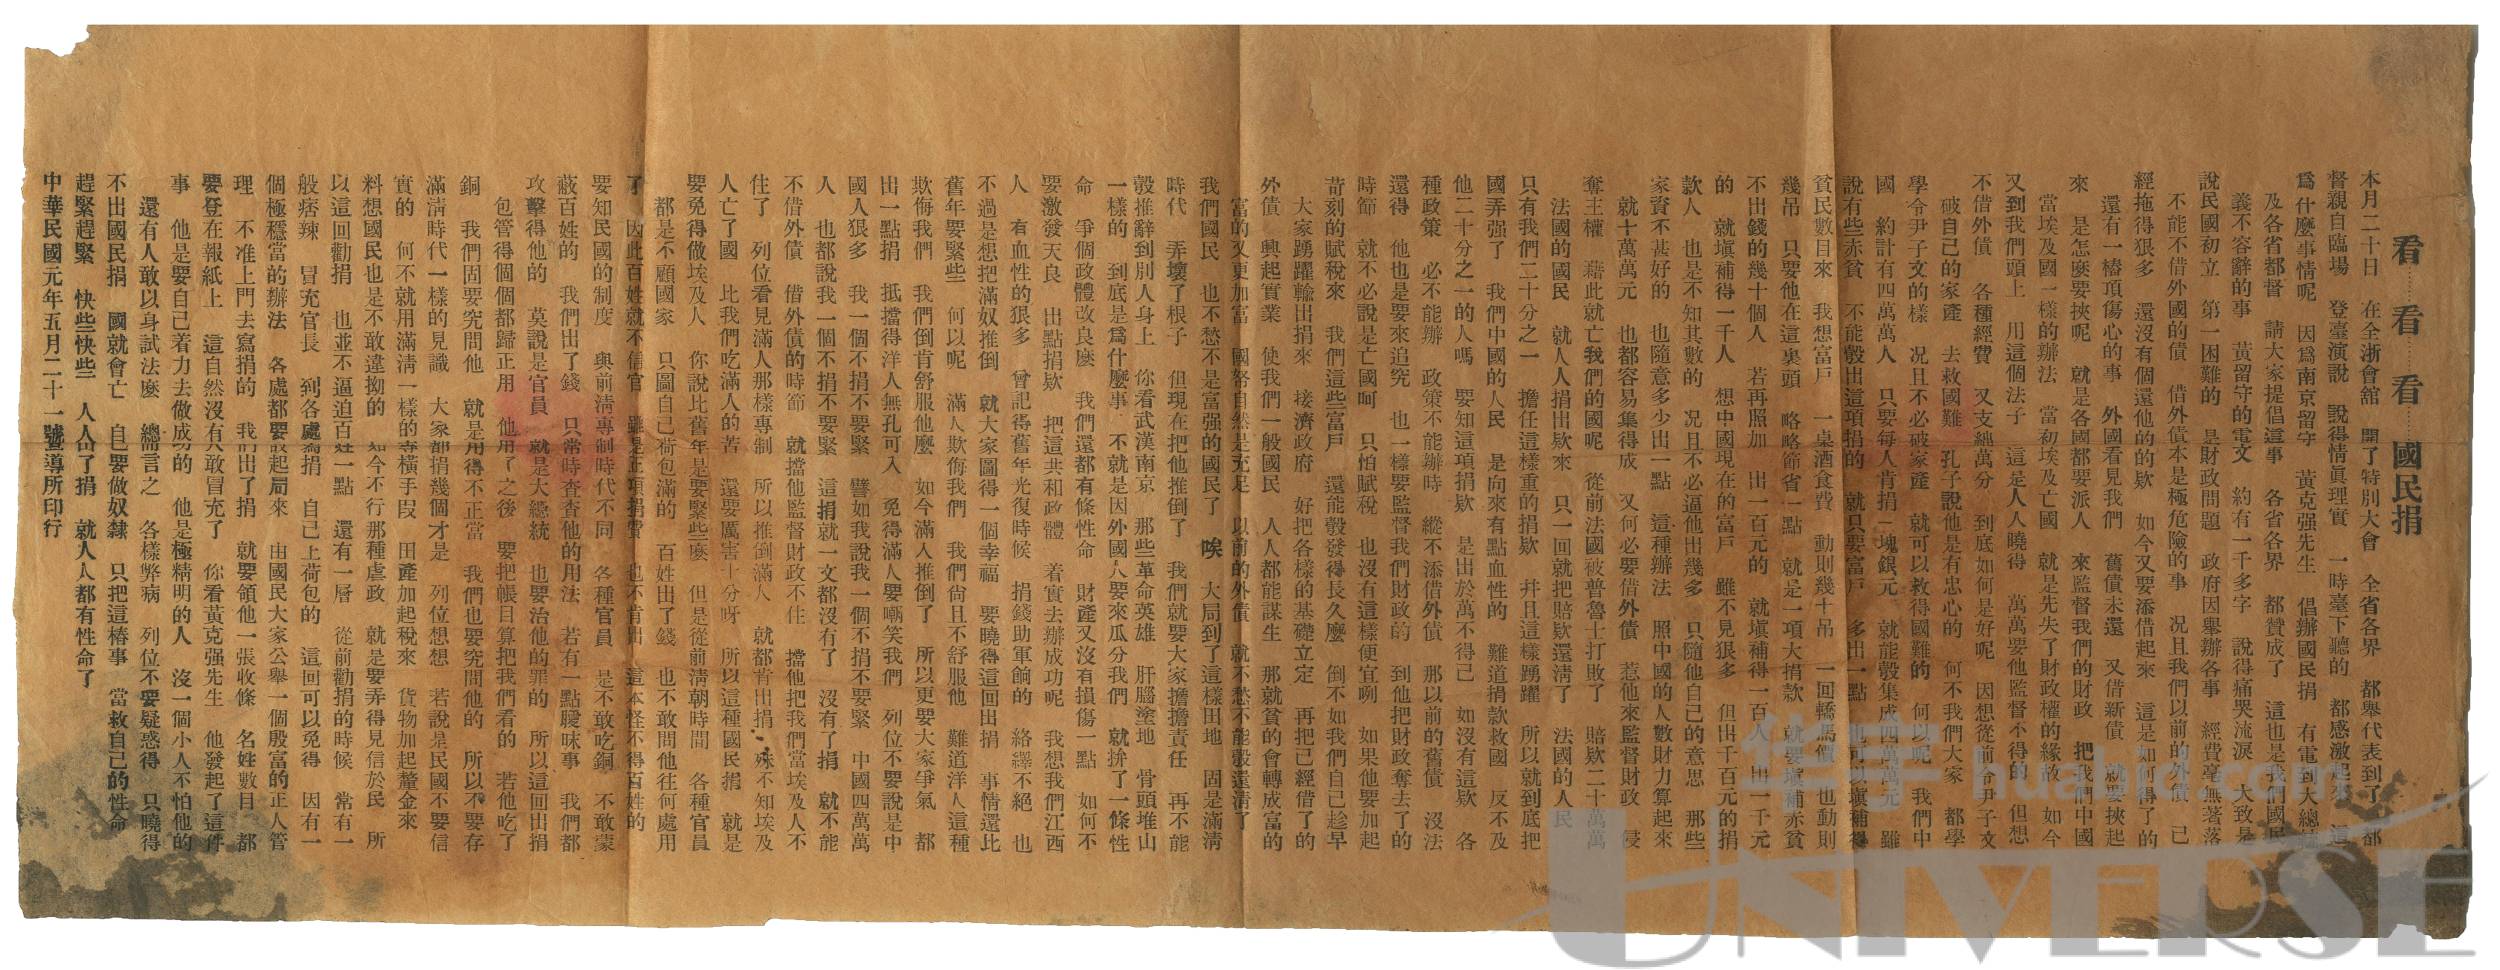 看……看……看……國民捐
本月二十日　在全浙會館　開了特別大會　全省各界　都舉代表到了　都
督親自臨場　登臺演說　說得情眞理實　一時臺下聽的　都感激起來　這
爲什麼事情呢　因爲南京留守　黃克强先生　倡辦國民捐　有電到大總統
及各省都督　請大家提倡這事　各省各界　都贊成了　這也是我們國民
義不容辭的事　黃留守的電文　約有一千多字　說得痛哭流淚　大致是
說民國初立　第一困難的　是財政問題　政府因舉辦各事　經費毫無著落
不能不借外國的債　借外債本是極危險的事　况且我們以前的外債　已
經拖得狠多　還沒有個還他的的欵　如今又要添借起來　這是如何得了的
還有一樁項傷心的事　外國看見我們　舊債未還　又借新債　就要挾起
來　是怎麼要挾呢　就是各國都要派人　來監督我們的財政　把我們中國
當埃及國一樣的辦法　當初埃及亡國　就是先失了財政權的緣故　如今
又到我們頭上　用這個法子　這是人人曉得　萬萬要他監督不得的　但想
不借外債　各種經費　又支絀萬分　到底如何是好呢　因想從前令尹子文
破自己的家產　去救國難　孔子說他是有忠心的　何不我們大家　都學
學令尹子文的樣　况且不必破家產　就可以救得國難的　何以呢　我們中
國　約計有四萬萬人　只要每人肯捐一塊銀元　就能彀集成四萬萬元　雖
說有些赤貧　不能彀出這項捐的　就只要富戶　多出一點　也可以塡補得
貧民數目來　我想富戶　一桌酒食費　動則幾十吊　一回轎馬價　也動則
幾吊　只要他在這裏頭　略略節省一點　就是一項大捐款　就要塡補赤貧
不出錢的幾十個人　若再照加　出一百元的　就塡補得一百人　出一千元
的　就塡補得一千人　想中國現在的富戶　雖不見狠多　但出千百元的捐
款人　也是不知其數的　况且不必逼他出幾多　只隨他自己的意思　那些
家資不甚好的　也隨意多少出一點　這種辦法　照中國的人數財力算起來
就十萬萬元　也都容易集得成　又何必要借外債　惹他來監督財政　侵
奪主權　藉此就亡我們的國呢　從前法國被普魯士打敗了　賠欵二十萬萬
法國的國民　就人人捐出欵來　只一回就把賠欵還淸了　法國的人民
只有我們二十分之一　擔任這樣重的捐欵　幷且這樣踴躍　所以就到底把
國弄强了　我們中國的人民　是向來有點血性的　難道捐款救國　反不及
他二十分之一的人嗎　要知這項捐欵　是出於萬不得已　如沒有這欵　各
種政策　必不能辦　政策不能辦時　縱不添借外債　那以前的舊債　沒法
還得　他也是要來追究　也一樣要監督我們財政的　到他把財政奪去了的
時節　就不必說是亡國呵　只怕賦稅　也沒有這樣便宜咧　如果他要加起
苛刻的賦稅來　我們這些富戶　還能彀發得長久麼　倒不如我們自己趁早
大家踴躍輸出捐來　接濟政府　好把各樣的基礎立定　再把已經借了的
外債　興起實業　使我們一般國民　人人都能謀生　那就貧的會轉成富的
富的又更加富　國帑自然是充足　以前的外債　就不愁不能彀還淸了
我們國民　也不愁不是富强的國民了　唉　大局到了這樣田地　固是滿淸
時代　弄壞了根子　但現在把他推倒了　我們就要大家擔擔責任　再不能
彀推辭到別人身上　你看武漢南京　那些革命英雄　肝腦塗地　骨頭堆山
一樣的　到底是爲什麼事　不就是因外國人要來瓜分我們　就拚了一條性
命　爭個政體改良麼　我們還都有條性命　財產又沒有損傷一點　如何不
要激發天良　出點捐欵　把這共和政體　着實去辦成功呢　我想我們江西
人　有血性的狠多　曾記得舊年光復時候　捐錢助軍餉的　絡繹不絕　也
不過是想把滿奴推倒　就大家圖得一個幸福　要曉得這回出捐　事情還比
舊年要緊些　何以呢　滿人欺侮我們　我們尙且不舒服他　難道洋人這種
欺侮我們　我們倒肯舒服他麼　如今滿人推倒了　所以更要大家爭氣　都
出一點捐　抵擋得洋人無孔可入　免得滿人要嘲笑我們　列位不要說是中
國人狠多　我一個不捐不要緊　譬如我說我一個不捐不要緊　中國四萬萬
人　也都說我一個不捐不要緊　這捐就一文都沒有了　沒有了捐　就不能
不借外債　借外債的時節　就擋他監督財政不住　擋他把我們當埃及人不
住了　列位看見滿人那樣專制　所以推倒滿人　就都肯出捐　殊不知埃及
人亡了國　比我們吃滿人的苦　還要厲害十分呀　所以這種國民捐　就是
要免得做埃及人　你說比舊年是要緊些麼　但是從前淸朝時間　各種官員
都是不顧國家　只圖自己荷包滿的　百姓出了錢　也不敢問他往何處用
了　因此百姓就不信官　雖是正項捐費　也不肯出　這本怪不得百姓的
要知民國的制度　與前淸專制時代不同　各種官員　是不敢吃銅　不敢蒙
蔽百姓的　我們出了錢　只常時查查他的用法　若有一點曖昧事　我們都
攻擊得他的　莫說是官員　就是大總統　也要治他的罪的　所以這回出捐
包管得個個都歸正用　他用了之後　要把帳目算把我們看的　若他吃了
銅　我們固要究問他　就是用得不正當　我們也要究問他的　所以不要存
滿淸時代一樣的見識　大家都捐幾個才是　列位想想　若說是民國不要信
實的　何不就用滿淸一樣的專橫手段　田產加起稅來　貨物加起釐金來
料想國民也是不敢違拗的　如今不行那種虐政　就是要弄得見信於民　所
以這回勸捐　也並不逼迫百姓一點　還有一層　從前勸捐的時候　常有一
般痞辣　冒充官長　到各處寫捐　自己上荷包的　這回可以免得　因有一
個極穩當的辦法　各處都要設起局來　由國民大家公舉一個殷富的正人管
理　不准上門去寫捐的　我們出了捐　就要領他一張收條　名姓數目　都
要登在報紙上　這自然沒有人敢冒充了　你看黃克强先生　他發起了這件
事　他是要自己着力去做成功的　他是極精明的人　沒一個小人不怕他的
還有人敢以身試法麼　總言之　各樣弊病　列位不要疑惑得　只曉得
不出國民捐　國就會亡　自要做奴隸　只把這樁事　當救自己的性命
趕緊趕緊　快些快些　人人出了捐　就人人都有性命了
中華民國元年五月二十一號導所印行
华宇 huabid.com
UNIVERSE